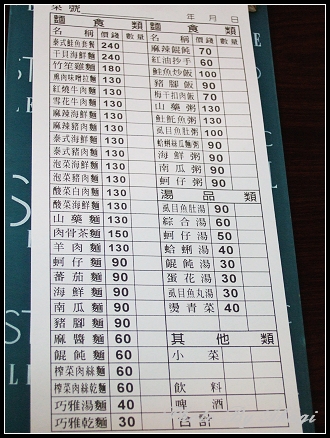 菜號 年 月 日
麵食類
名稱 價錢 數量
泰式鮭魚套餐 240
干貝海鮮麵 240
竹笙雞麵 180
燻肉味噌拉麵 130
紅燒牛肉麵 130
雪花牛肉麵 130
麻辣海鮮麵 130
麻辣豬肉麵 130
泰式海鮮麵 130
泰式豬肉麵 130
泡菜海鮮麵 130
泡菜豬肉麵 130
酸菜白肉麵 130
酸菜海鮮麵 130
山藥麵 130
肉骨茶麵 150
羊肉麵 130
蚵仔麵 90
蕃茄麵 90
海鮮麵 90
南瓜麵 90
豬腳麵 90
麻醬麵 60
餛飩麵 60
榨菜肉絲麵 60
榨菜肉絲乾麵 60
巧雅湯麵 40
巧雅乾麵 30
麵食類
名稱 價錢 數量
麻辣餛飩 70
紅油抄手 60
鮭魚炒飯 100
豬腳飯 90
梅干扣肉飯 70
山藥粥 130
魠魠魚粥 130
虱目魚肚粥 100
蛤蜊絲瓜麵粥 90
海鮮粥 90
南瓜粥 90
蚵仔粥 90
湯品類
虱目魚肚湯 90
綜合湯 60
蚵仔湯 50
蛤蜊湯 40
餛飩湯 30
蛋花湯 30
虱目魚丸湯 30
燙青菜 40
其他類
小菜
飲料
啤酒
合計